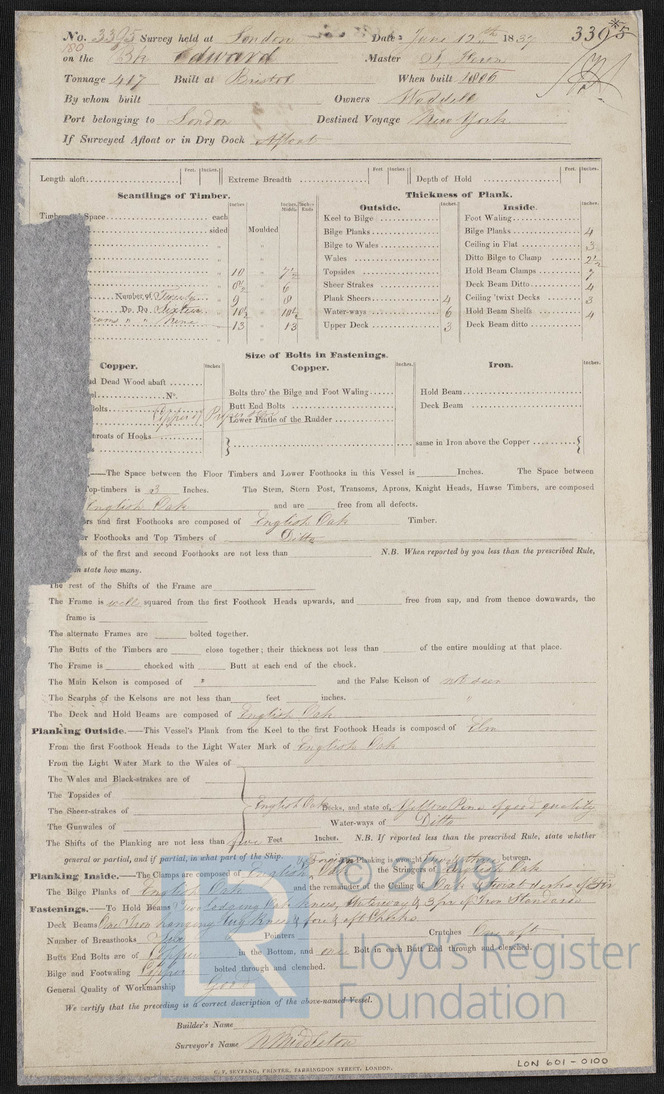 No. 3395 Survey held at London Date June 12th 1837 3395
on the Bk Edward Master
Tonnage 417 Built at Bristol When built 1806
By whom built Owners Waddell
Port belonging to London Destined Voyage New York
If Surveyed Afloat or in Dry Dock Afloat
Feet. Inches. Feet. Inches. Feet. Inches.
Length aloft Extreme Breadth Depth of Hold
Scantlings of Timber. Thickness of Plank.
Outside. Inside.
Space each Keel to Bilge Foot Waling
sided Moulded Bilge Planks Bilge Planks 4
Bilge to Wales Ceiling in Flat 3
Wales Ditto Bilge to Clamp 2½
10 Topsides Hold Beam Clamps 7
6½ 6 Sheer Strakes Deck Beam Ditto 4
Number of Twenty 9 8 Plank Sheers 4 Ceiling 'twixt Decks 3
Do. Do. Sixteen 10½ 10½ Water-ways 6 Hold Beam Shelfs 4
" " Nine 13 13 Upper Deck 3 Deck Beam ditto
Size of Bolts in Fastenings.
Copper. Copper. Iron.
nd Dead Wood abaft Bolts thro' the Bilge and Foot Waling Hold Beam
No. Butt End Bolts Deck Beam
Bolts Lower Pintle of the Rudder
hroats of Hooks same in Iron above the Copper
—The Space between the Floor Timbers and Lower Foothooks in this Vessel is Inches. The Space between
Top-timbers is 3 Inches. The Stem, Stern Post, Transoms, Aprons, Knight Heads, Hawse Timbers, are composed
English Oak and are free from all defects.
rs and first Foothooks are composed of English Oak Timber.
r Foothooks and Top Timbers of Ditto
s of the first and second Foothooks are not less than N.B. When reported by you less than the prescribed Rule,
n state how many.
The rest of the Shifts of the Frame are
The Frame is well squared from the first Foothook Heads upwards, and free from sap, and from thence downwards, the
frame is
The alternate Frames are bolted together.
The Butts of the Timbers are close together; their thickness not less than of the entire moulding at that place.
The Frame is chocked with Butt at each end of the chock.
The Main Kelson is composed of " and the False Kelson of not seen
The Scarphs of the Kelsons are not less than feet inches. "
The Deck and Hold Beams are composed of English Oak
Planking Outside.—This Vessel's Plank from the Keel to the first Foothook Head is composed of Elm
From the first Foothook Heads to the Light Water Mark of English Oak
From the Light Water Mark to the Wales of
The Wales and Black-strakes are of
The Topsides of
The Sheer-strakes of English Oak Decks, and state of, Yellow Pine of good quality
The Gunwales of Water-ways of Ditto
The Shifts of the Planking are not less than five Feet Inches. N.B. If reported less than the prescribed Rule, state whether
general or partial, and if partial, in what part of the Ship. Planking is wrought between.
Planking Inside.—The Clamps are composed of English Oak the Stringers of English Oak
The Bilge Planks of English Oak and the remainder of the Ceiling of Oak several strakes of Fir
Fastenings.—To Hold Beams Two lodging Oak knees, Waterway & 3 pr of Iron Standards
Deck Beams One Iron hanging & fore & aft Chocks
Number of Breasthooks Five Pointers Crutches One aft
Butts End Bolts are of Copper in the Bottom, and one Bolt in each Butt End through and clenched.
Bilge and Footwaling Copper bolted through and clenched.
General Quality of Workmanship Good
We certify that the preceding is a correct description of the above-named Vessel.
Builder's Name
Surveyor's Name N Middleton
E. F. SEYFANG, PRINTER, FARRINGDON STREET, LONDON.
LON 601 - 0100
© 2019
LR
Lloyd's Register
Foundation